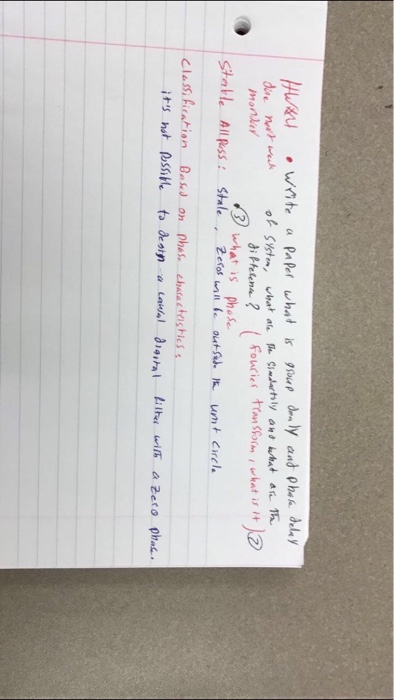 HW#1 • write a paper what is group dealy and phase delay
due next week of system, what are the similartily and what are the
monday difference? (fourier transform, what is it) ②
③ what is phase
Stable Allpass: Stale, zeros will be outside the unit circle
Classification Based on phase charactristics:
it's not possible to design a causal digital filter with a zero phase.